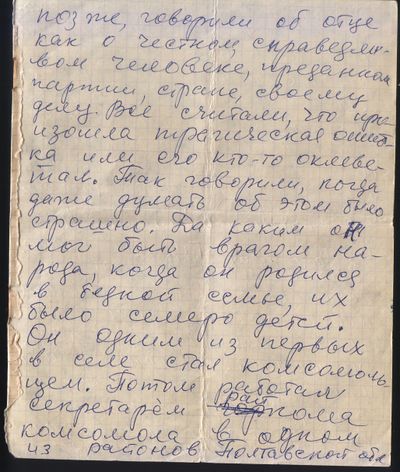 позже, говорили об отце
как о честном, справедли-
вом человеке, преданном
партии, стране, своему
делу. Все считали, что про-
изошла трагическая ошиб-
ка или его кто-то оклеве-
тал. Так говорили, когда
даже думать об этом было
страшно. Да каким он
мог быть врагом на-
рода, когда он родился
в бедной семье, их
было семеро детей.
Он одним из первых
в селе стал комсомоль
цем. Потом работал
секретарём райкома
комсомола в одном
из районов Полтавской обл